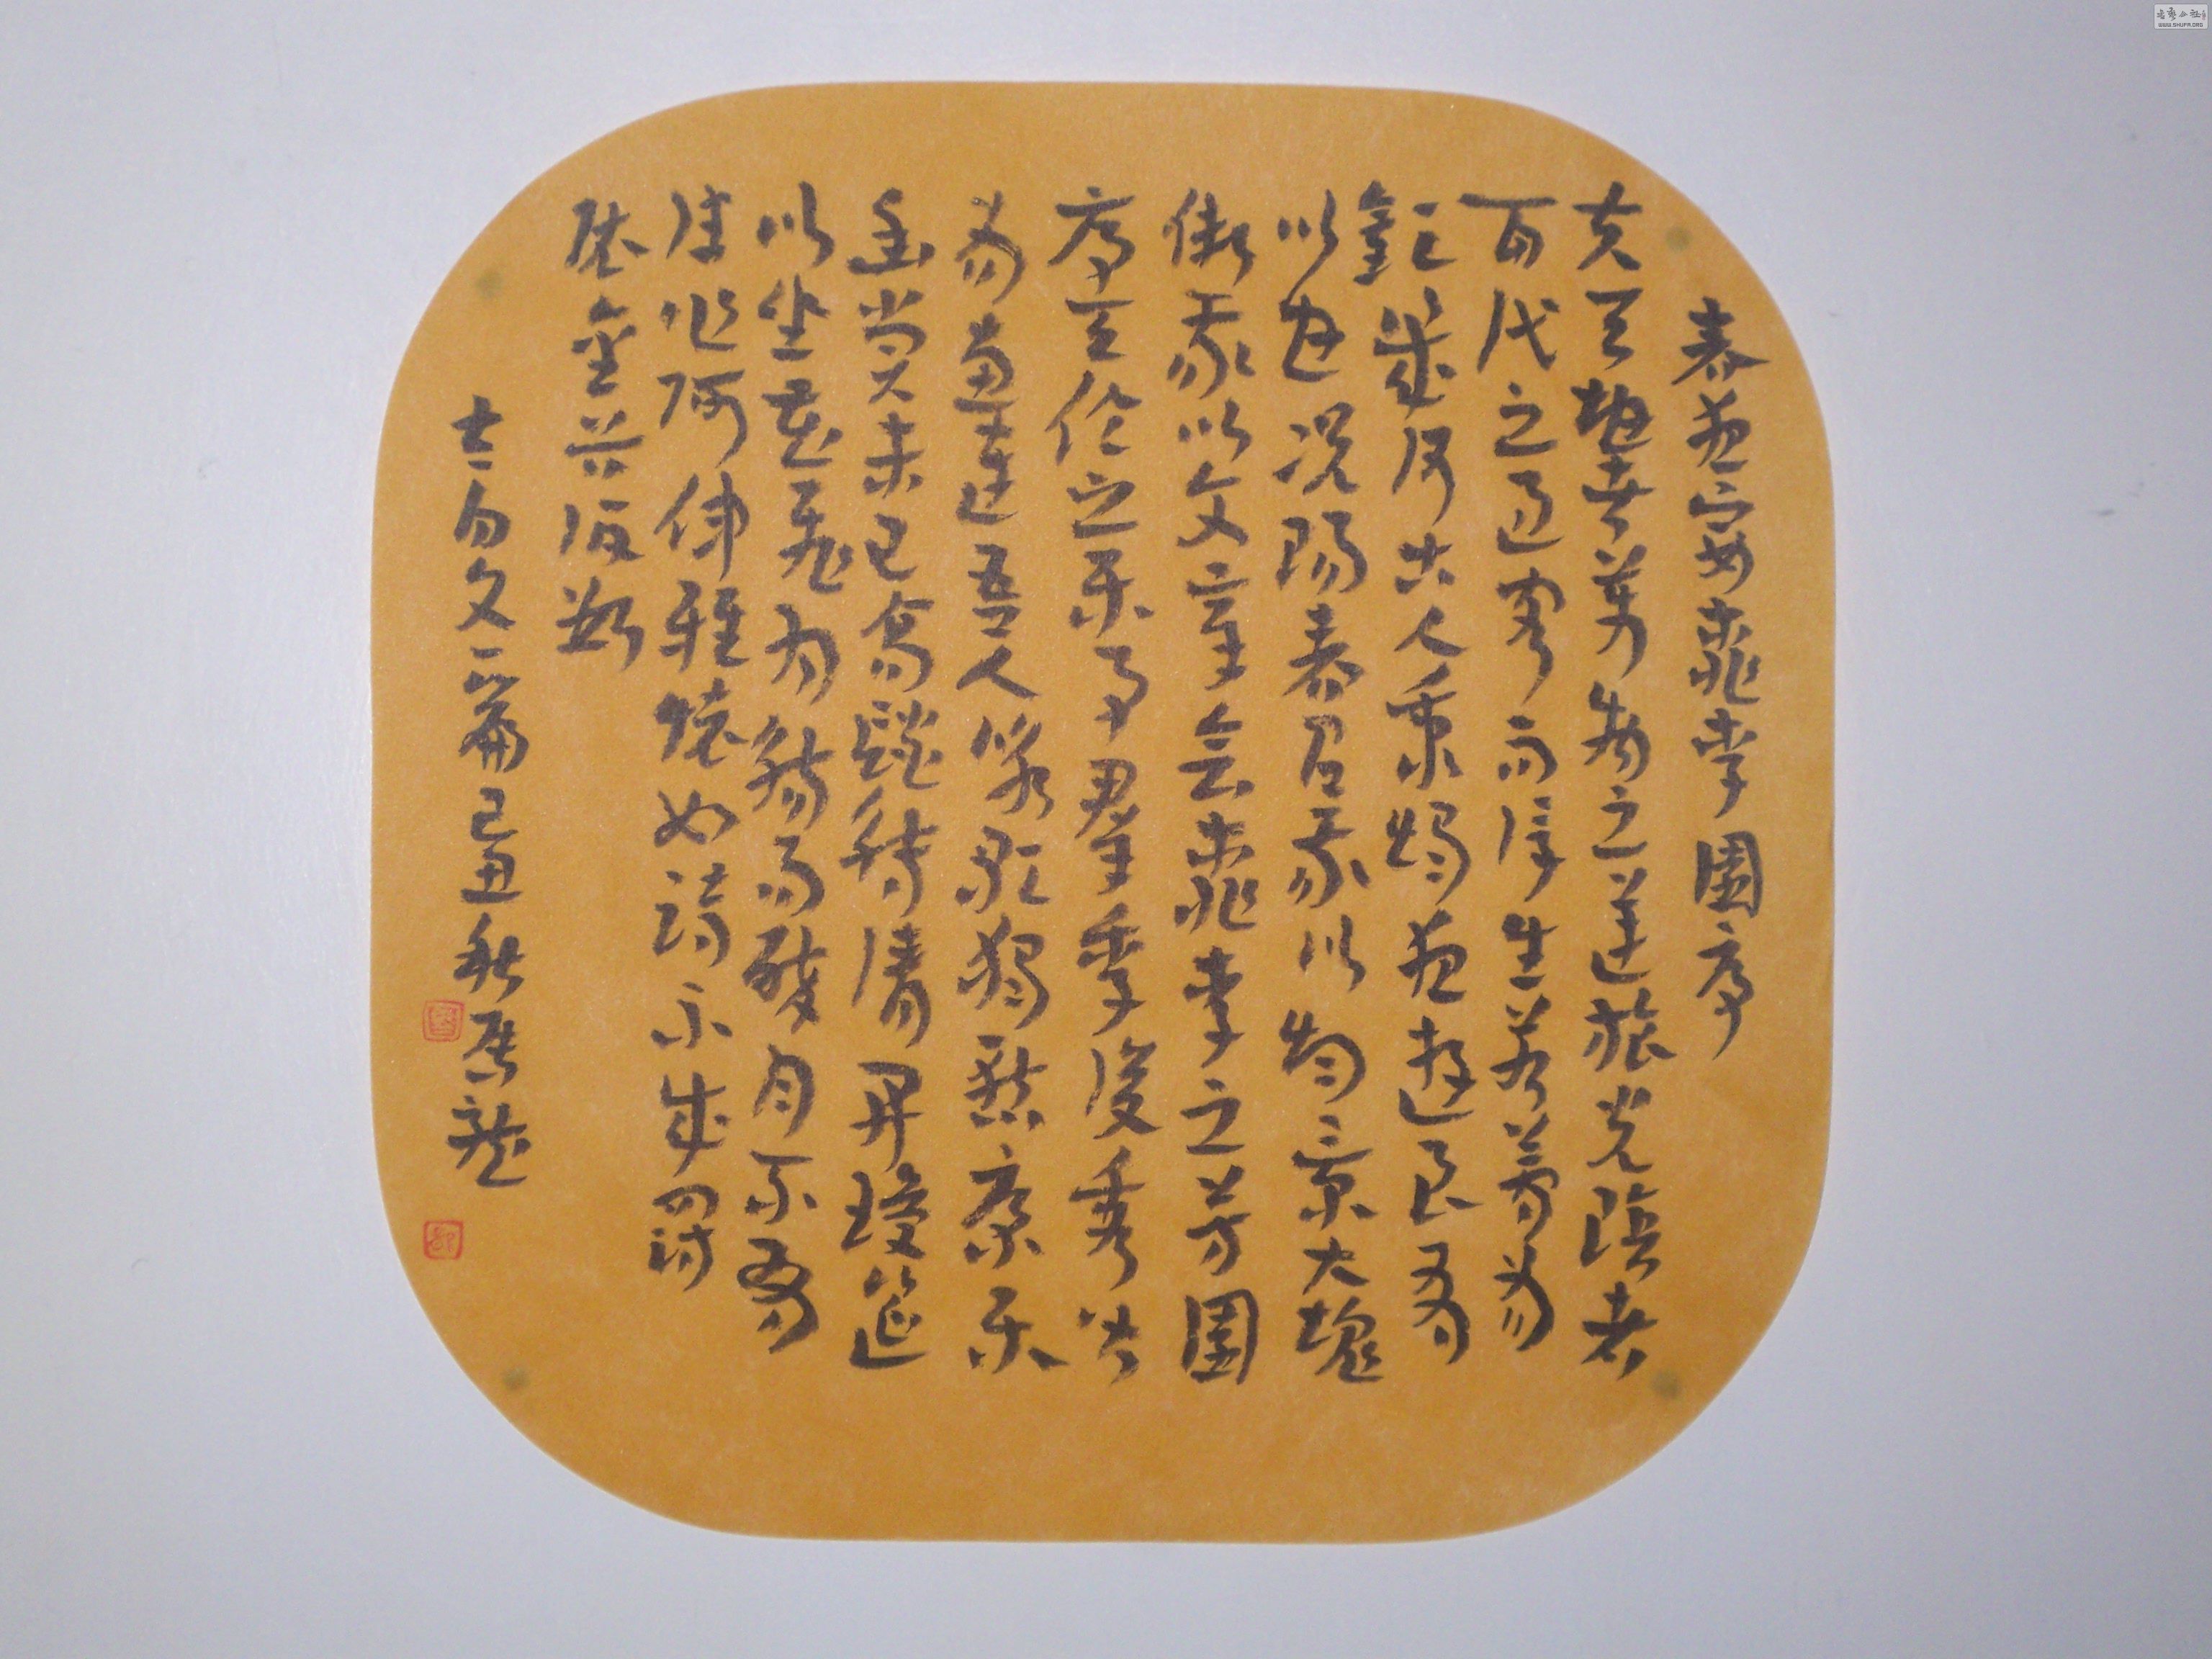 春夜宴桃李園序
夫天地者萬物之逆旅光陰者
百代之過客而浮生若夢為
歡幾何古人秉燭夜遊良有
以也況陽春召我以烟景大塊
假我以文章会桃李之芳園
序天倫之樂事群季俊秀皆
為惠連吾人詠歌獨慚康樂
幽賞未已高談轉清開瓊筵
以坐花飛羽觴而醉月不有
佳作何伸雅懷如詩不成罰
依金谷酒數
文一篇己丑秋
WWW.SHUFA.ORG